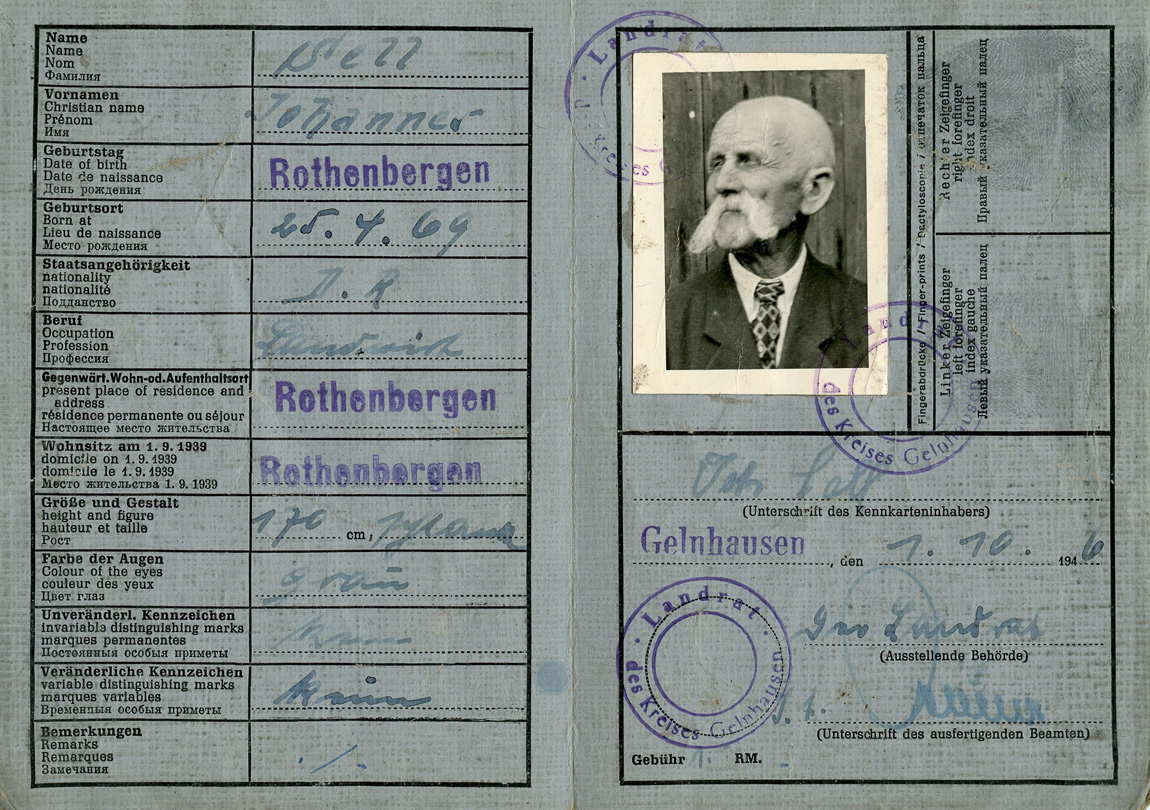 Name
Name
Nom
Фамилия
Vornamen
Christian name
Prénom
Имя
Johannes
Geburtstag
Date of birth
Date de naissance
День рождения
Rothenbergen
Geburtsort
Born at
Lieu de naissance
Место рождения
25. 4. 69
Staatsangehörigkeit
nationality
nationalité
Подданство
D. R
Beruf
Occupation
Profession
Профессия
Landwirt
Gegenwärt.Wohn-od.Aufenthaltsort
present place of residence and
address
résidence permanente ou séjour
Настоящее место жительства
Rothenbergen
Wohnsitz am 1. 9. 1939
domicile on 1. 9. 1939
domicile le 1. 9. 1939
Место жительства 1. 9. 1939
Rothenbergen
Größe und Gestalt
height and figure
hauteur et taille
Рост
170 cm, schlank
Farbe der Augen
Colour of the eyes
couleur des yeux
Цвет глаз
grau
Unveränderl. Kennzeichen
invariable distinguishing marks
marques permanentes
Постоянныя особыя приметы
Keine
Veränderliche Kennzeichen
variable distinguishing marks
marques variables
Временныя особыя приметы
Keine
Bemerkungen
Remarks
Remarques
Замечания
./.
Landrat
Kreises
Landrat
des Kreises Gelnhausen
Fingerabdrücke / Finger-prints / Dactyloscopie / отпечаток пальца
Rechter Zeigefinger
right forefinger
index droit
Правый указательный палец
Linker Zeigefinger
left forefinger
index gauche
Левый указательный палец
(Unterschrift des Kennkarteninhabers)
Gelnhausen, den 1. 10. 1946
Landrat
des Kreises Gelnhausen
Der Landrat
(Ausstellende Behörde)
(Unterschrift des ausfertigenden Beamten)
Gebühr 1. RM.